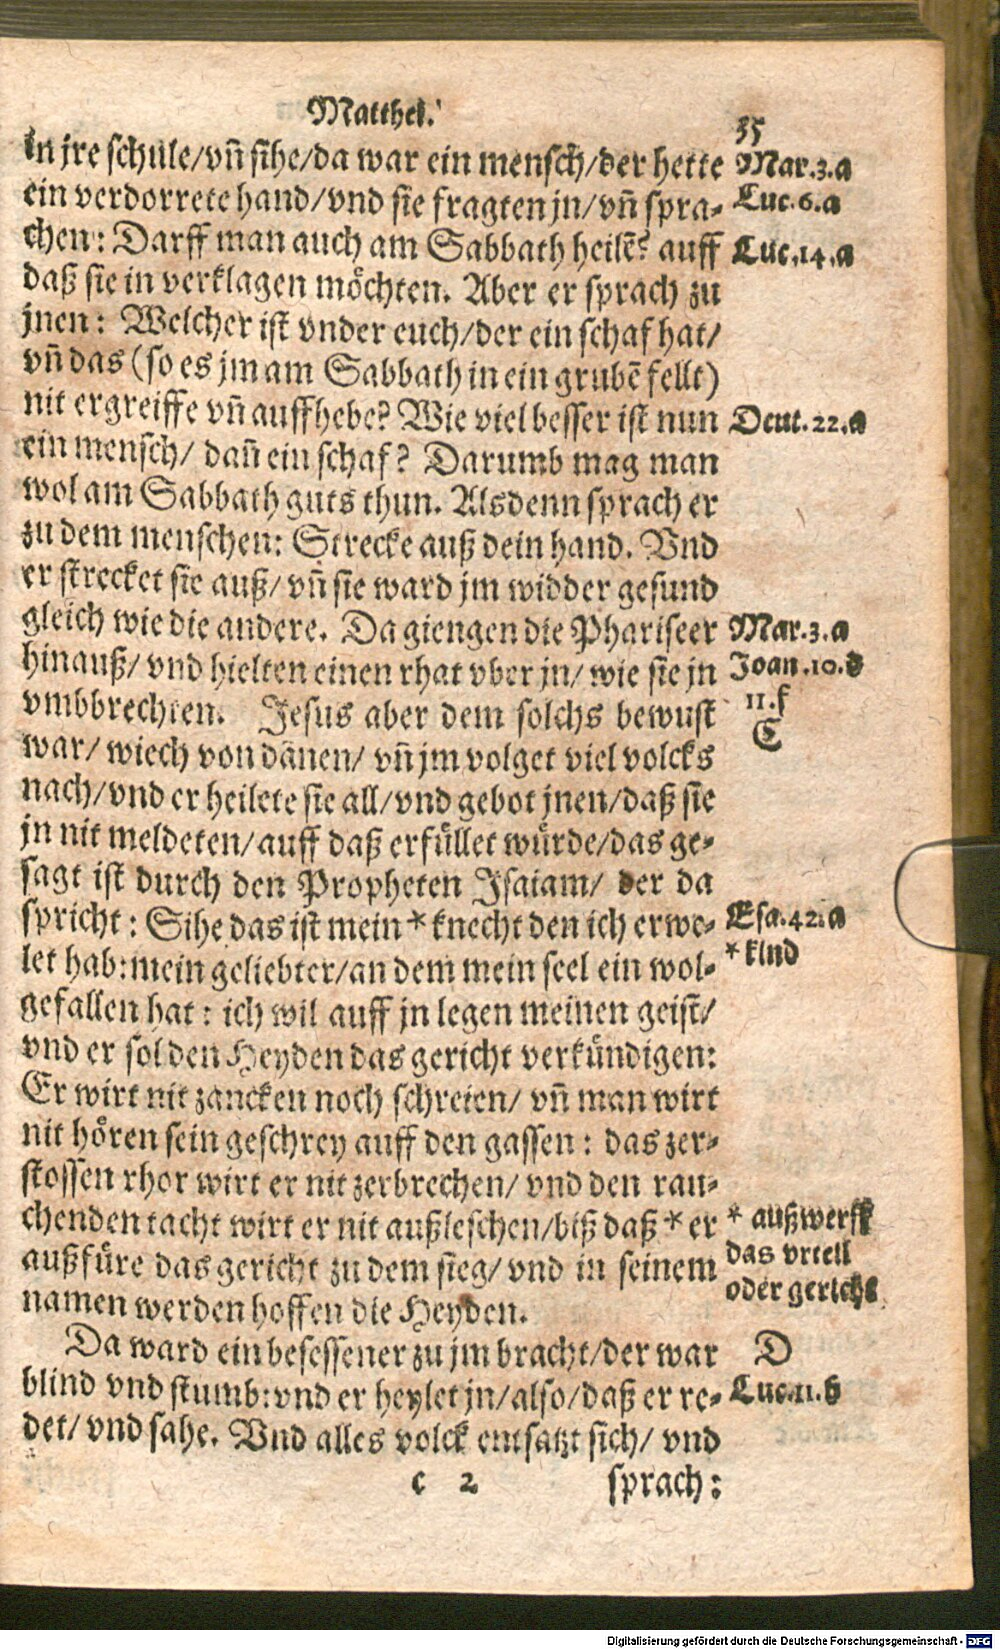 Matthei.
35
in jre schule/vñ sihe/da war ein mensch/der hette
ein verdorrete hand/vnd sie fragten jn/vñ spra-
chen: Darff man auch am Sabbath heilẽ? auff
daß sie in verklagen möchten. Aber er sprach zu
jnen: Welcher ist vnder euch/der ein schaf hat/
vñ das (so es jm am Sabbath in ein grubẽ fellt)
nit ergreiffe vñ auffhebe? Wie viel besser ist nun
ein mensch/ dañ ein schaf? Darumb mag man
wol am Sabbath guts thun. Alsdenn sprach er
zu dem menschen: Strecke auß dein hand. Vnd
er strecket sie auß/ vñ sie ward jm widder gesund
gleich wie die andere. Da giengen die Phariseer
hinauß/ vnd hielten einen rhat vber jn/ wie sie jn
vmbbrechten. Jesus aber dem solchs bewust
war/ wiech von dänen/ vñ jm volget viel volcks
nach/vnd er heilete sie all/vnd gebot jnen/daß sie
jn nit meldeten/auff daß erfüllet würde/das ge-
sagt ist durch den Propheten Isaiam/ der da
spricht: Sihe das ist mein * knecht den ich erwe-
let hab: mein geliebter/an dem mein seel ein wol-
gefallen hat: ich wil auff jn legen meinen geist/
vnd er sol den Heyden das gericht verkündigen:
Er wirt nit zancken noch schreien/ vñ man wirt
nit hören sein geschrey auff den gassen: das zer-
stossen rhor wirt er nit zerbrechen/ vnd den rau-
chenden tacht wirt er nit außleschen/biß daß * er
außfüre das gericht zu dem sieg/ vnd in seinem
namen werden hoffen die Heyden.
Da ward ein besessener zu jm bracht/der war
blind vnd stumb: vnd er heylet jn/also/daß er re-
det/ vnd sahe. Vnd alles volck entsatzt sich/ vnd
c 2 sprach:
Mar.3.a
Luc.6.a
Luc.14.a
Deut.22.a
Mar.3.a
Joan.10.d
11.f
C
Esa.42.a
* kind
* außwerff
das vrteil
oder gericht
D
Luc.11.b
Digitalisierung gefördert durch die Deutsche Forschungsgemeinschaft - DFG